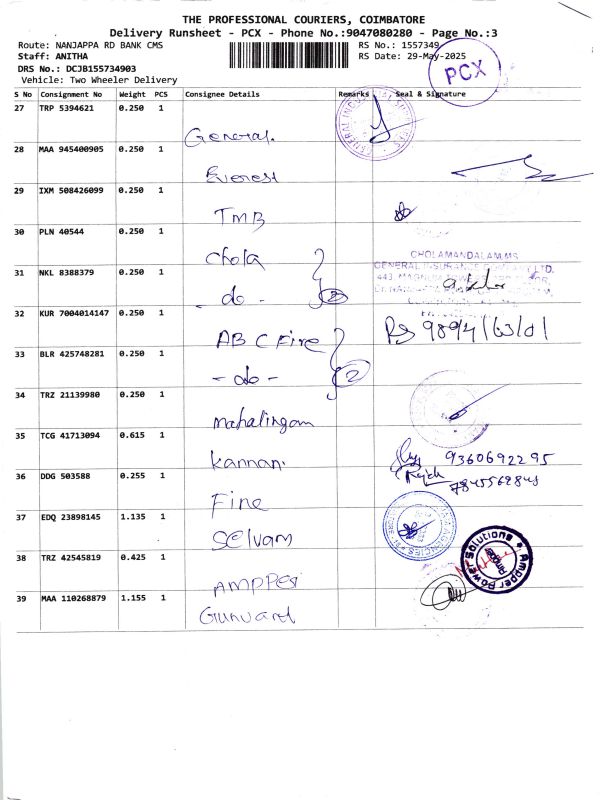 THE PROFESSIONAL COURIERS, COIMBATORE
Delivery Runsheet - PCX - Phone No.:9047080280 - Page No.:3
Route: NANJAPPA RD BANK CMS
RS No.: 1557349
Staff: ANITHA
RS Date: 29-May-2025
DRS No.: DCJB155734903
Vehicle: Two Wheeler Delivery
PCX
S No Consignment No Weight PCS Consignee Details Remarks Seal & Signature
27 TRP 5394621 0.250 1 General.
28 MAA 945400905 0.250 1 Everest
29 IXM 508426099 0.250 1 TMB
30 PLN 40544 0.250 1 Chola
CHOLAMANDALAM MS
GENERAL INSURANCE COMPANY LTD.
31 NKL 8388379 0.250 1 - do - 2
32 KUR 7004014147 0.250 1 ABC Fire
33 BLR 425748281 0.250 1 - do - 2
34 TRZ 21139980 0.250 1 Mahalingam
35 TCG 41713094 0.615 1 Kannan 9360692295
36 DDG 503588 0.255 1 Fine
37 EDQ 23898145 1.135 1 Selvam
38 TRZ 42545819 0.425 1 AMPPER
Ampper Power Solutions
39 MAA 110268879 1.155 1 Gunvant